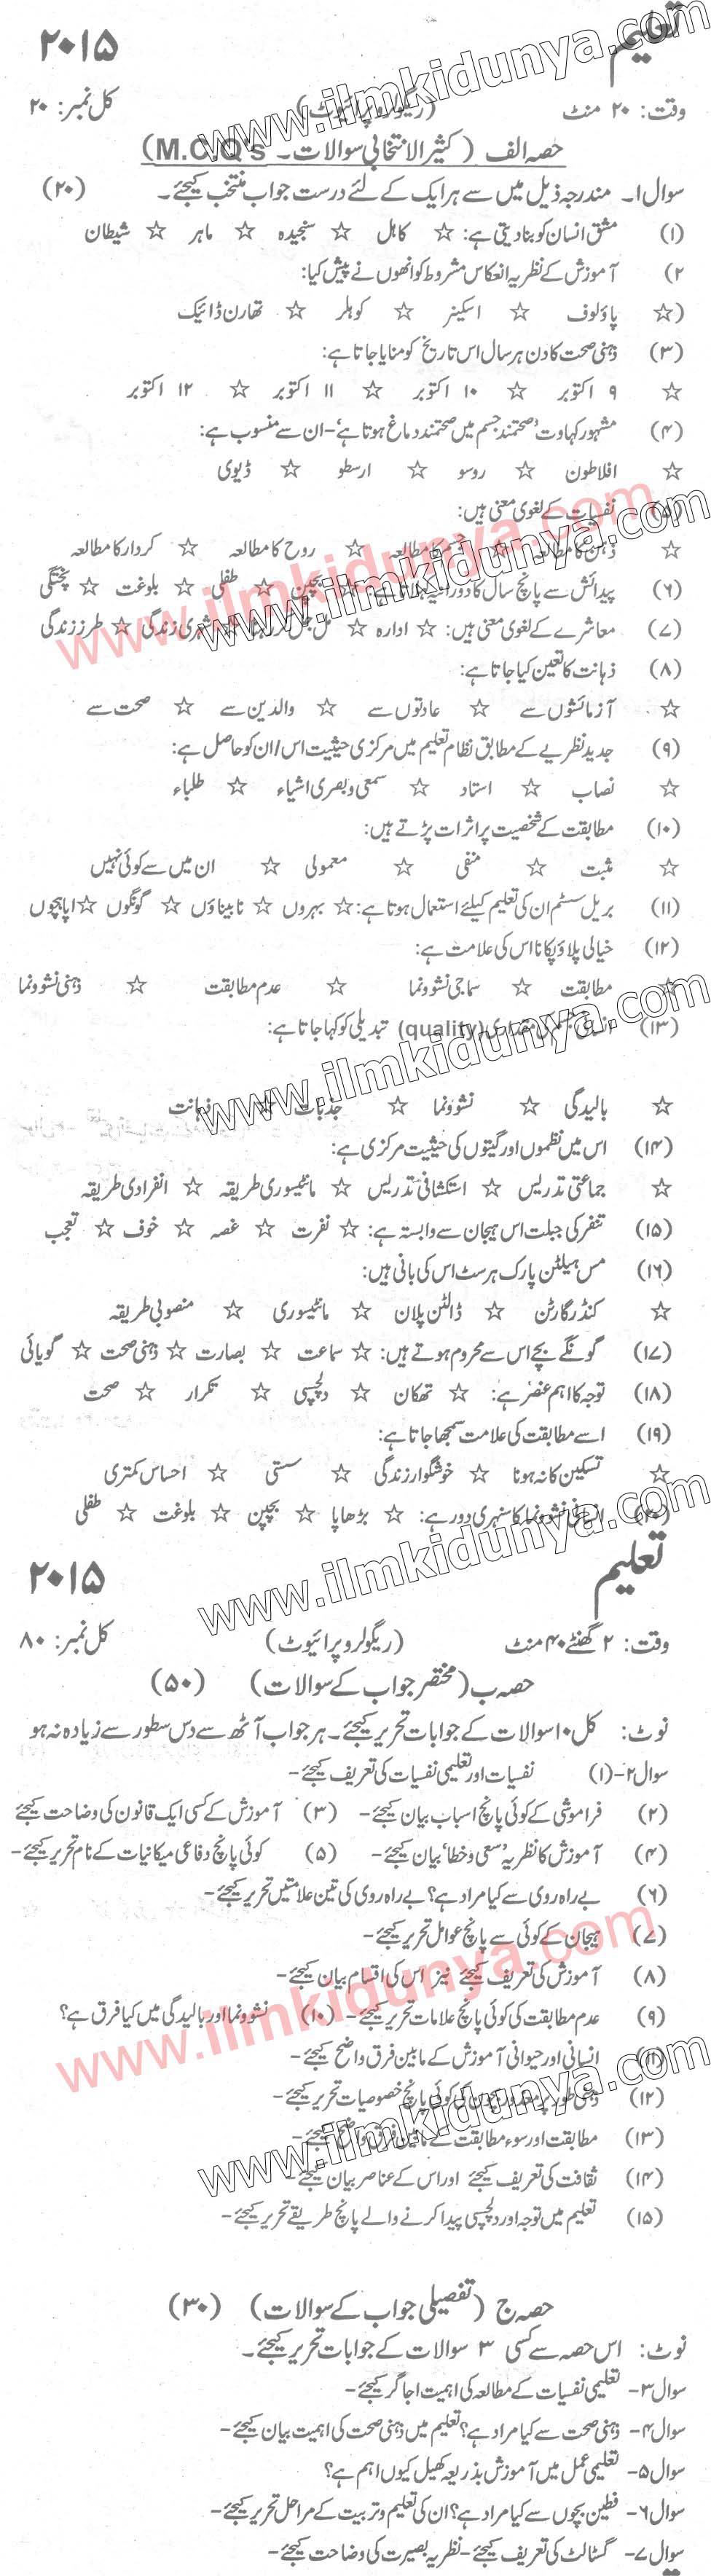 تعلیم ۲۰۱۵
وقت: ۲۰ منٹ (ریگولر و پرائیوٹ) کل نمبر: ۲۰
حصہ الف (کثیر الانتخابی سوالات۔ M.C.Q's)
سوال ا۔ مندرجہ ذیل میں سے ہر ایک کے لئے درست جواب منتخب کیجئے۔ (۲۰)
(۱) مشق انسان کو بنا دیتی ہے: ☆ کاہل ☆ سنجیدہ ☆ ماہر ☆ شیطان
۲) آموزش کے نظریہ انعکاس مشروط کو انھوں نے پیش کیا:
(☆ پاؤلوف ☆ اسکینر ☆ کوہلر ☆ تھارن ڈائیک
(۳) ذہنی صحت کا دن ہر سال اس تاریخ کو منایا جاتا ہے:
☆ ۹ اکتوبر ☆ ۱۰ اکتوبر ☆ ۱۱ اکتوبر ☆ ۱۲ اکتوبر
(۴) مشہور کہاوت 'صحتمند جسم میں صحتمند دماغ ہوتا ہے' - ان سے منسوب ہے:
☆ افلاطون ☆ روسو ☆ ارسطو ☆ ڈیوی
(۵) نفسیات کے لغوی معنی ہیں:
☆ ذہن کا مطالعہ ☆ مطالعہ ☆ روح کا مطالعہ ☆ کردار کا مطالعہ
(۶) پیدائش سے پانچ سال کا دور ☆ بچپن ☆ طفلی ☆ بلوغت ☆ پختگی
(۷) معاشرے کے لغوی معنی ہیں: ☆ ادارہ ☆ مل جل کر رہنا ☆ شہری زندگی ☆ طرز زندگی
(۸) ذہانت کا تعین کیا جاتا ہے:
☆ آزمائشوں سے ☆ عادتوں سے ☆ والدین سے ☆ صحت سے
(۹) جدید نظریے کے مطابق نظام تعلیم میں مرکزی حیثیت اس/ان کو حاصل ہے:
☆ نصاب ☆ استاد ☆ سمعی و بصری اشیاء ☆ طلباء
(۱۰) مطابقت کے شخصیت پر اثرات پڑتے ہیں:
☆ مثبت ☆ منفی ☆ معمولی ☆ ان میں سے کوئی نہیں
(۱۱) بریل سسٹم ان کی تعلیم کیلئے استعمال ہوتا ہے: ☆ بہروں ☆ نابیناؤں ☆ گونگوں ☆ اپاہجوں
(۱۲) خیالی پلاؤ پکانا اس کی علامت ہے:
☆ مطابقت ☆ سماجی نشوونما ☆ عدم مطابقت ☆ ذہنی نشوونما
(۱۳) (quality) تبدیلی کو کہا جاتا ہے:
☆ بالیدگی ☆ نشوونما ☆ جذبات ☆ ذہانت
(۱۴) اس میں نظموں اور گیتوں کی حیثیت مرکزی ہے:
☆ جماعتی تدریس ☆ استکشافی تدریس ☆ مانٹیسوری طریقہ ☆ انفرادی طریقہ
(۱۵) تنفر کی جبلت اس ہیجان سے وابستہ ہے: ☆ نفرت ☆ غصہ ☆ خوف ☆ تعجب
(۱۶) مس ہیلٹن پارک ہرسٹ اس کی بانی ہیں:
☆ کنڈر گارٹن ☆ ڈالٹن پلان ☆ مانٹیسوری ☆ منصوبی طریقہ
(۱۷) گونگے بچے اس سے محروم ہوتے ہیں: ☆ سماعت ☆ بصارت ☆ ذہنی صحت ☆ گویائی
(۱۸) توجہ کا اہم عنصر ہے: ☆ تھکان ☆ دلچسپی ☆ تکرار ☆ صحت
(۱۹) اسے مطابقت کی علامت سمجھا جاتا ہے:
☆ تسکین کا نہ ہونا ☆ خوشگوار زندگی ☆ سستی ☆ احساس کمتری
(۲۰) انسانی نشوونما کا سنہری دور ہے: ☆ بڑھاپا ☆ بچپن ☆ بلوغت ☆ طفلی
تعلیم ۲۰۱۵
وقت: ۲ گھنٹے ۴۰ منٹ (ریگولر و پرائیوٹ) کل نمبر: ۸۰
حصہ ب (مختصر جواب کے سوالات) (۵۰)
نوٹ: کل ۱۰ سوالات کے جوابات تحریر کیجئے۔ ہر جواب آٹھ سے دس سطور سے زیادہ نہ ہو
سوال ۲-(۱) نفسیات اور تعلیمی نفسیات کی تعریف کیجئے-
(۲) فراموشی کے کوئی پانچ اسباب بیان کیجئے- (۳) آموزش کے کسی ایک قانون کی وضاحت کیجئے
(۴) آموزش کا نظریہ 'سعی و خطا' بیان کیجئے- (۵) کوئی پانچ دفاعی میکانیات کے نام تحریر کیجئے-
(۶) بے راہ روی سے کیا مراد ہے؟ بے راہ روی کی تین علامتیں تحریر کیجئے-
(۷) ہیجان کے کوئی سے پانچ عوامل تحریر کیجئے-
(۸) آموزش کی تعریف کیجئے نیز اس کی اقسام بیان کیجئے-
(۹) عدم مطابقت کی کوئی پانچ علامات تحریر کیجئے- (۱۰) نشوونما اور بالیدگی میں کیا فرق ہے؟
(۱۱) انسانی اور حیوانی آموزش کے مابین فرق واضح کیجئے-
(۱۲) ذہنی طور پر معذور بچوں کی کوئی پانچ خصوصیات تحریر کیجئے-
(۱۳) مطابقت اور سوء مطابقت کے مابین فرق واضح کیجئے-
(۱۴) ثقافت کی تعریف کیجئے اور اس کے عناصر بیان کیجئے-
(۱۵) تعلیم میں توجہ اور دلچسپی پیدا کرنے والے پانچ طریقے تحریر کیجئے-
حصہ ج (تفصیلی جواب کے سوالات) (۳۰)
نوٹ: اس حصہ سے کسی ۳ سوالات کے جوابات تحریر کیجئے۔
سوال ۳- تعلیمی نفسیات کے مطالعہ کی اہمیت اجاگر کیجئے-
سوال ۴- ذہنی صحت سے کیا مراد ہے؟ تعلیم میں ذہنی صحت کی اہمیت بیان کیجئے-
سوال ۵- تعلیمی عمل میں آموزش بذریعہ کھیل کیوں اہم ہے؟
سوال ۶- فطین بچوں سے کیا مراد ہے؟ ان کی تعلیم و تربیت کے مراحل تحریر کیجئے-
سوال ۷- گسٹالٹ کی تعریف کیجئے- نظریہ بصیرت کی وضاحت کیجئے-
www.ilmkidunya.com
www.ilmkidunya.com
www.ilmkidunya.com
www.ilmkidunya.com
www.ilmkidunya.com
www.ilmkidunya.com
www.ilmkidunya.com